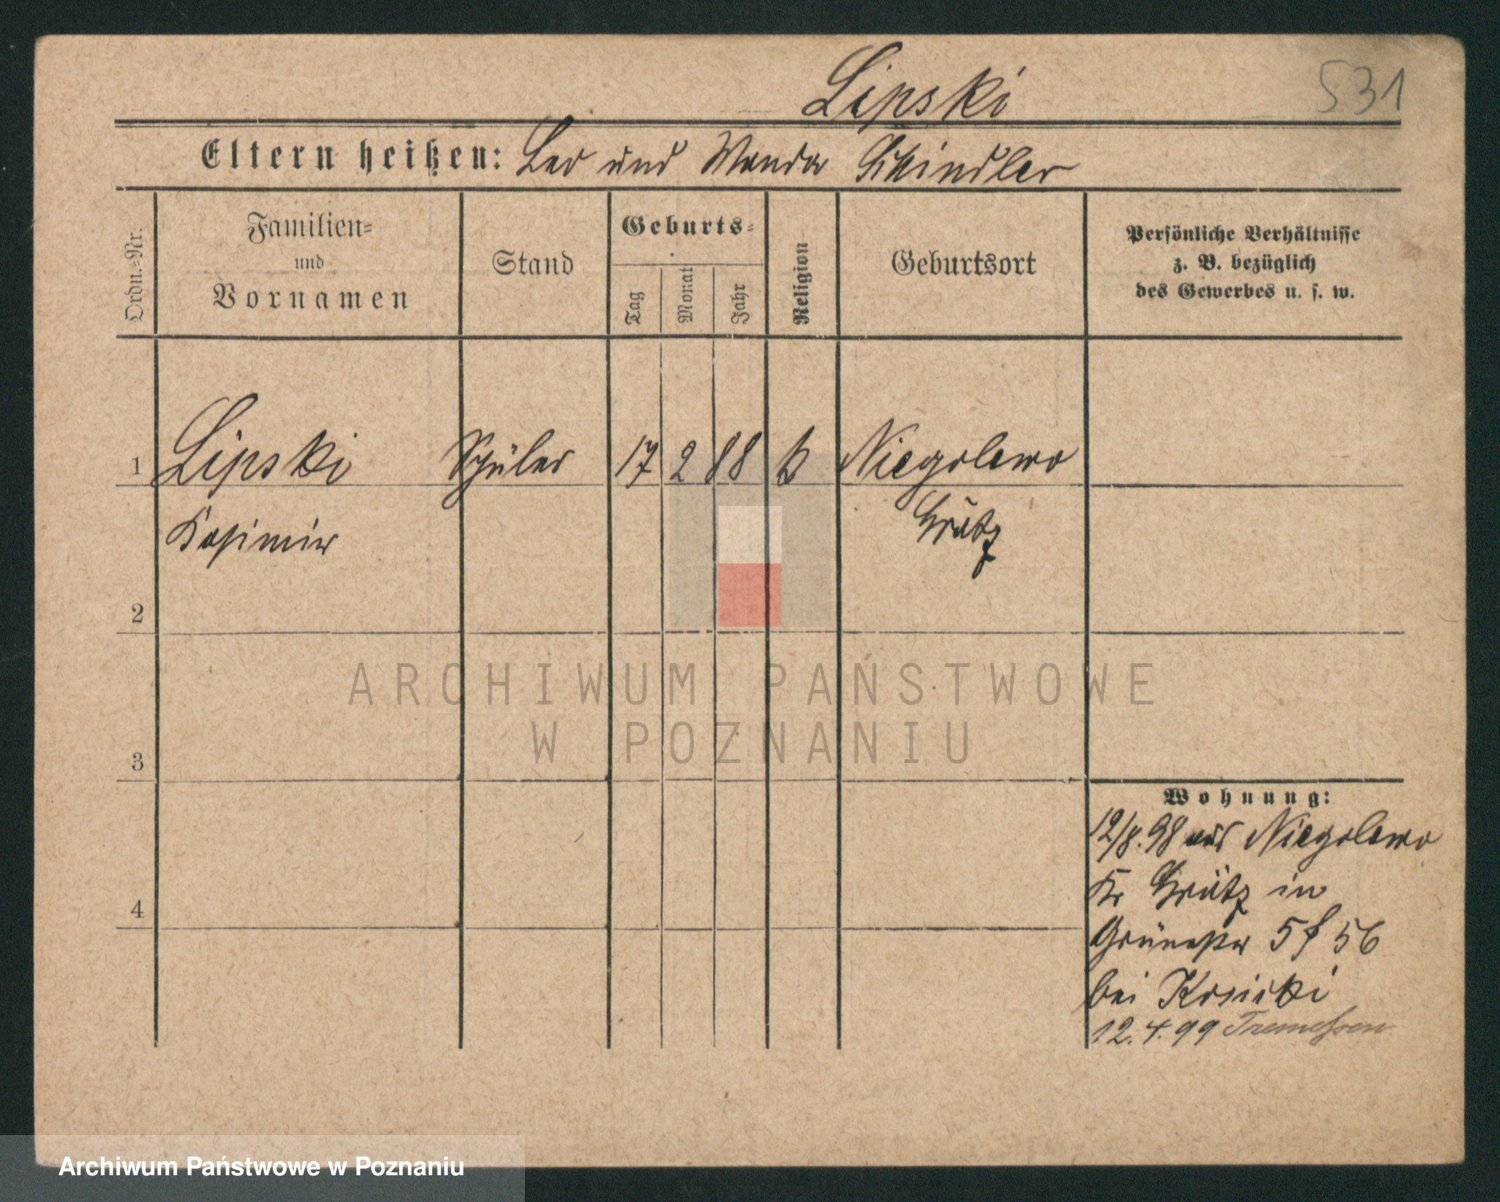 Lipski
531
Eltern heißen: Leo und Wanda Schindler
Ordn.-Nr.
Familien-
und
Vornamen
Stand
Geburts-
Tag
Monat
Jahr
Religion
Geburtsort
Persönliche Verhältnisse
z. B. bezüglich
des Gewerbes u. s. w.
1 Lipski Schüler 17 2 88 k Niegolewo
Kasimir Grätz
2
ARCHIWUM PAŃSTWOWE
W POZNANIU
3
Wohnung:
12/8.98 aus Niegolewo
Kr Grätz in
4
5 56
bei
12.4.99 Tremessen
Archiwum Państwowe w Poznaniu